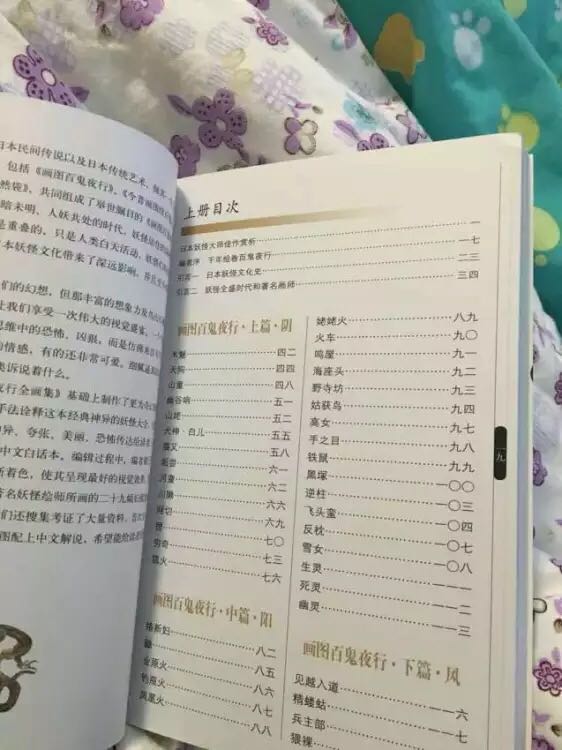 日本民间传说以及日本传统艺术、
，包括《画图百鬼夜行》、《今昔画图续百
然袋》，共同组成了举世瞩目的《画图百
暗未明、人妖共处的时代，妖怪居住的
是重叠的，只是人类白天活动，妖怪
本妖怪文化带来了深远影响，
们的幻想，但那丰富的想象力及
让我们享受一次伟大的视觉
思维中的恐怖、凶狠，而是
的情感，有的还非常可爱。细腻逼
类诉说着什么。
行全画集》基础上制作了更
手法诠释这本经典神异的妖怪大
异、夸张、美丽、恐怖传达给读
中文白话本。编辑过程中，编者
新着色，使其呈现最好的视觉效果
著名妖怪绘师所画的二十九幅长
们还搜集考证了大量资料，首次
图配上中文解说，希望能给读
上册目次
日本妖怪大师佳作赏析 一
千年绘卷百鬼夜行 一七
引言一 日本妖怪文化史 二三
引言二 妖怪全盛时代和著名画师 三四
画图百鬼夜行·上篇·阴
木魅 四二
天狗 四四
山童 四八
幽谷响 五一
山姥 五二
犬神·白儿 五五
猫又 五八
垢尝 六一
河童 六二
川獭 六六
网切 六九
狸 七〇
穷奇 七三
狐火 七六
画图百鬼夜行·中篇·阳
络新妇 八二
鼬 八五
丛原火 八六
钓瓶火 八七
火 八八
姥姥火 八九
火车 九〇
鸣屋 九一
海座头 九二
野寺坊 九三
姑获鸟 九四
高女 九七
手之目 九八
铁鼠 九九
黑塚 一〇〇
逆柱 一〇三
飞头蛮 一〇四
反枕 一〇七
雪女 一〇八
生灵 一一一
死灵 一一二
幽灵 一一三
画图百鬼夜行·下篇·风
见越入道 一一六
精蝼蛄
兵主部
狠裸
一九